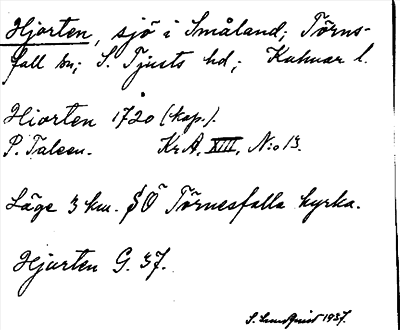 Hjorten, sjö i Småland; Törns-
fall sn; S. Tjusts hd; Kalmar l.
Hiorten 1720 (kop.).
P. Taleen. KrA. XIII, N:o 13.
Läge 3 km. SÖ Törnesfalla kyrka.
Hjorten G. 37.
S. Lundquist 1937.